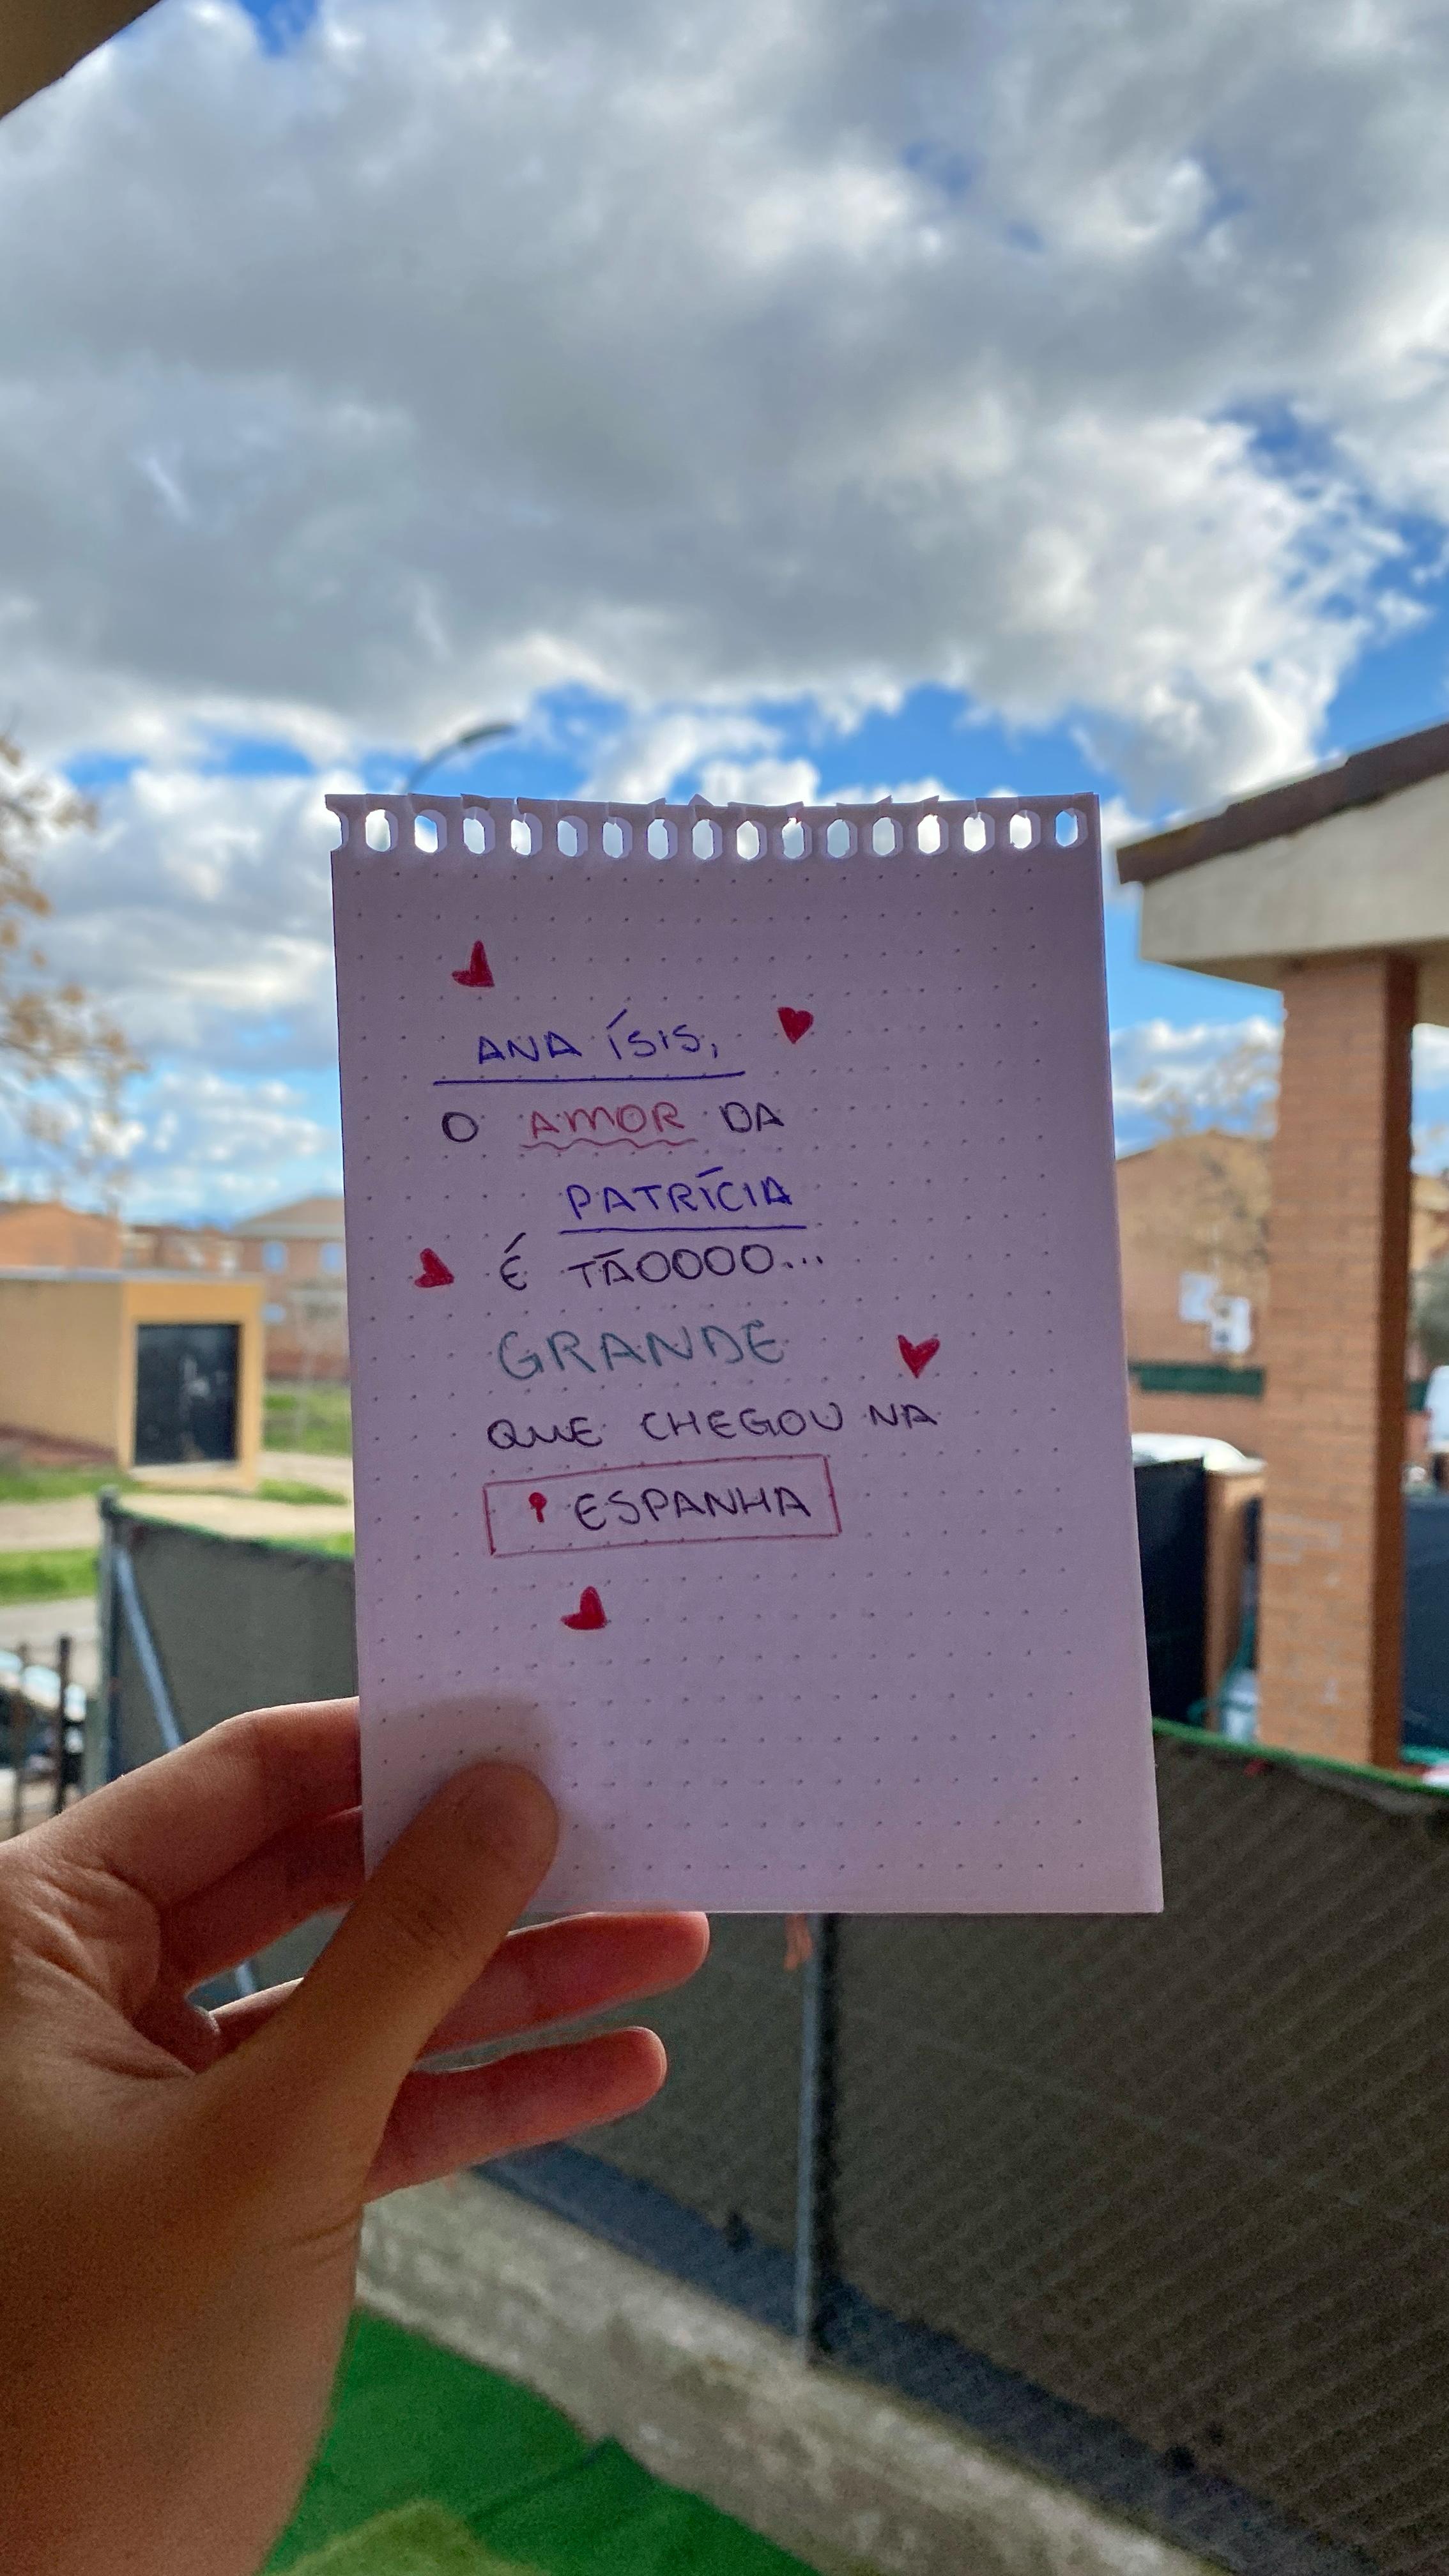 ANA ÍSIS,
O AMOR DA
PATRÍCIA
É TÃOOOO...
GRANDE
QUE CHEGOU NA
ESPANHA